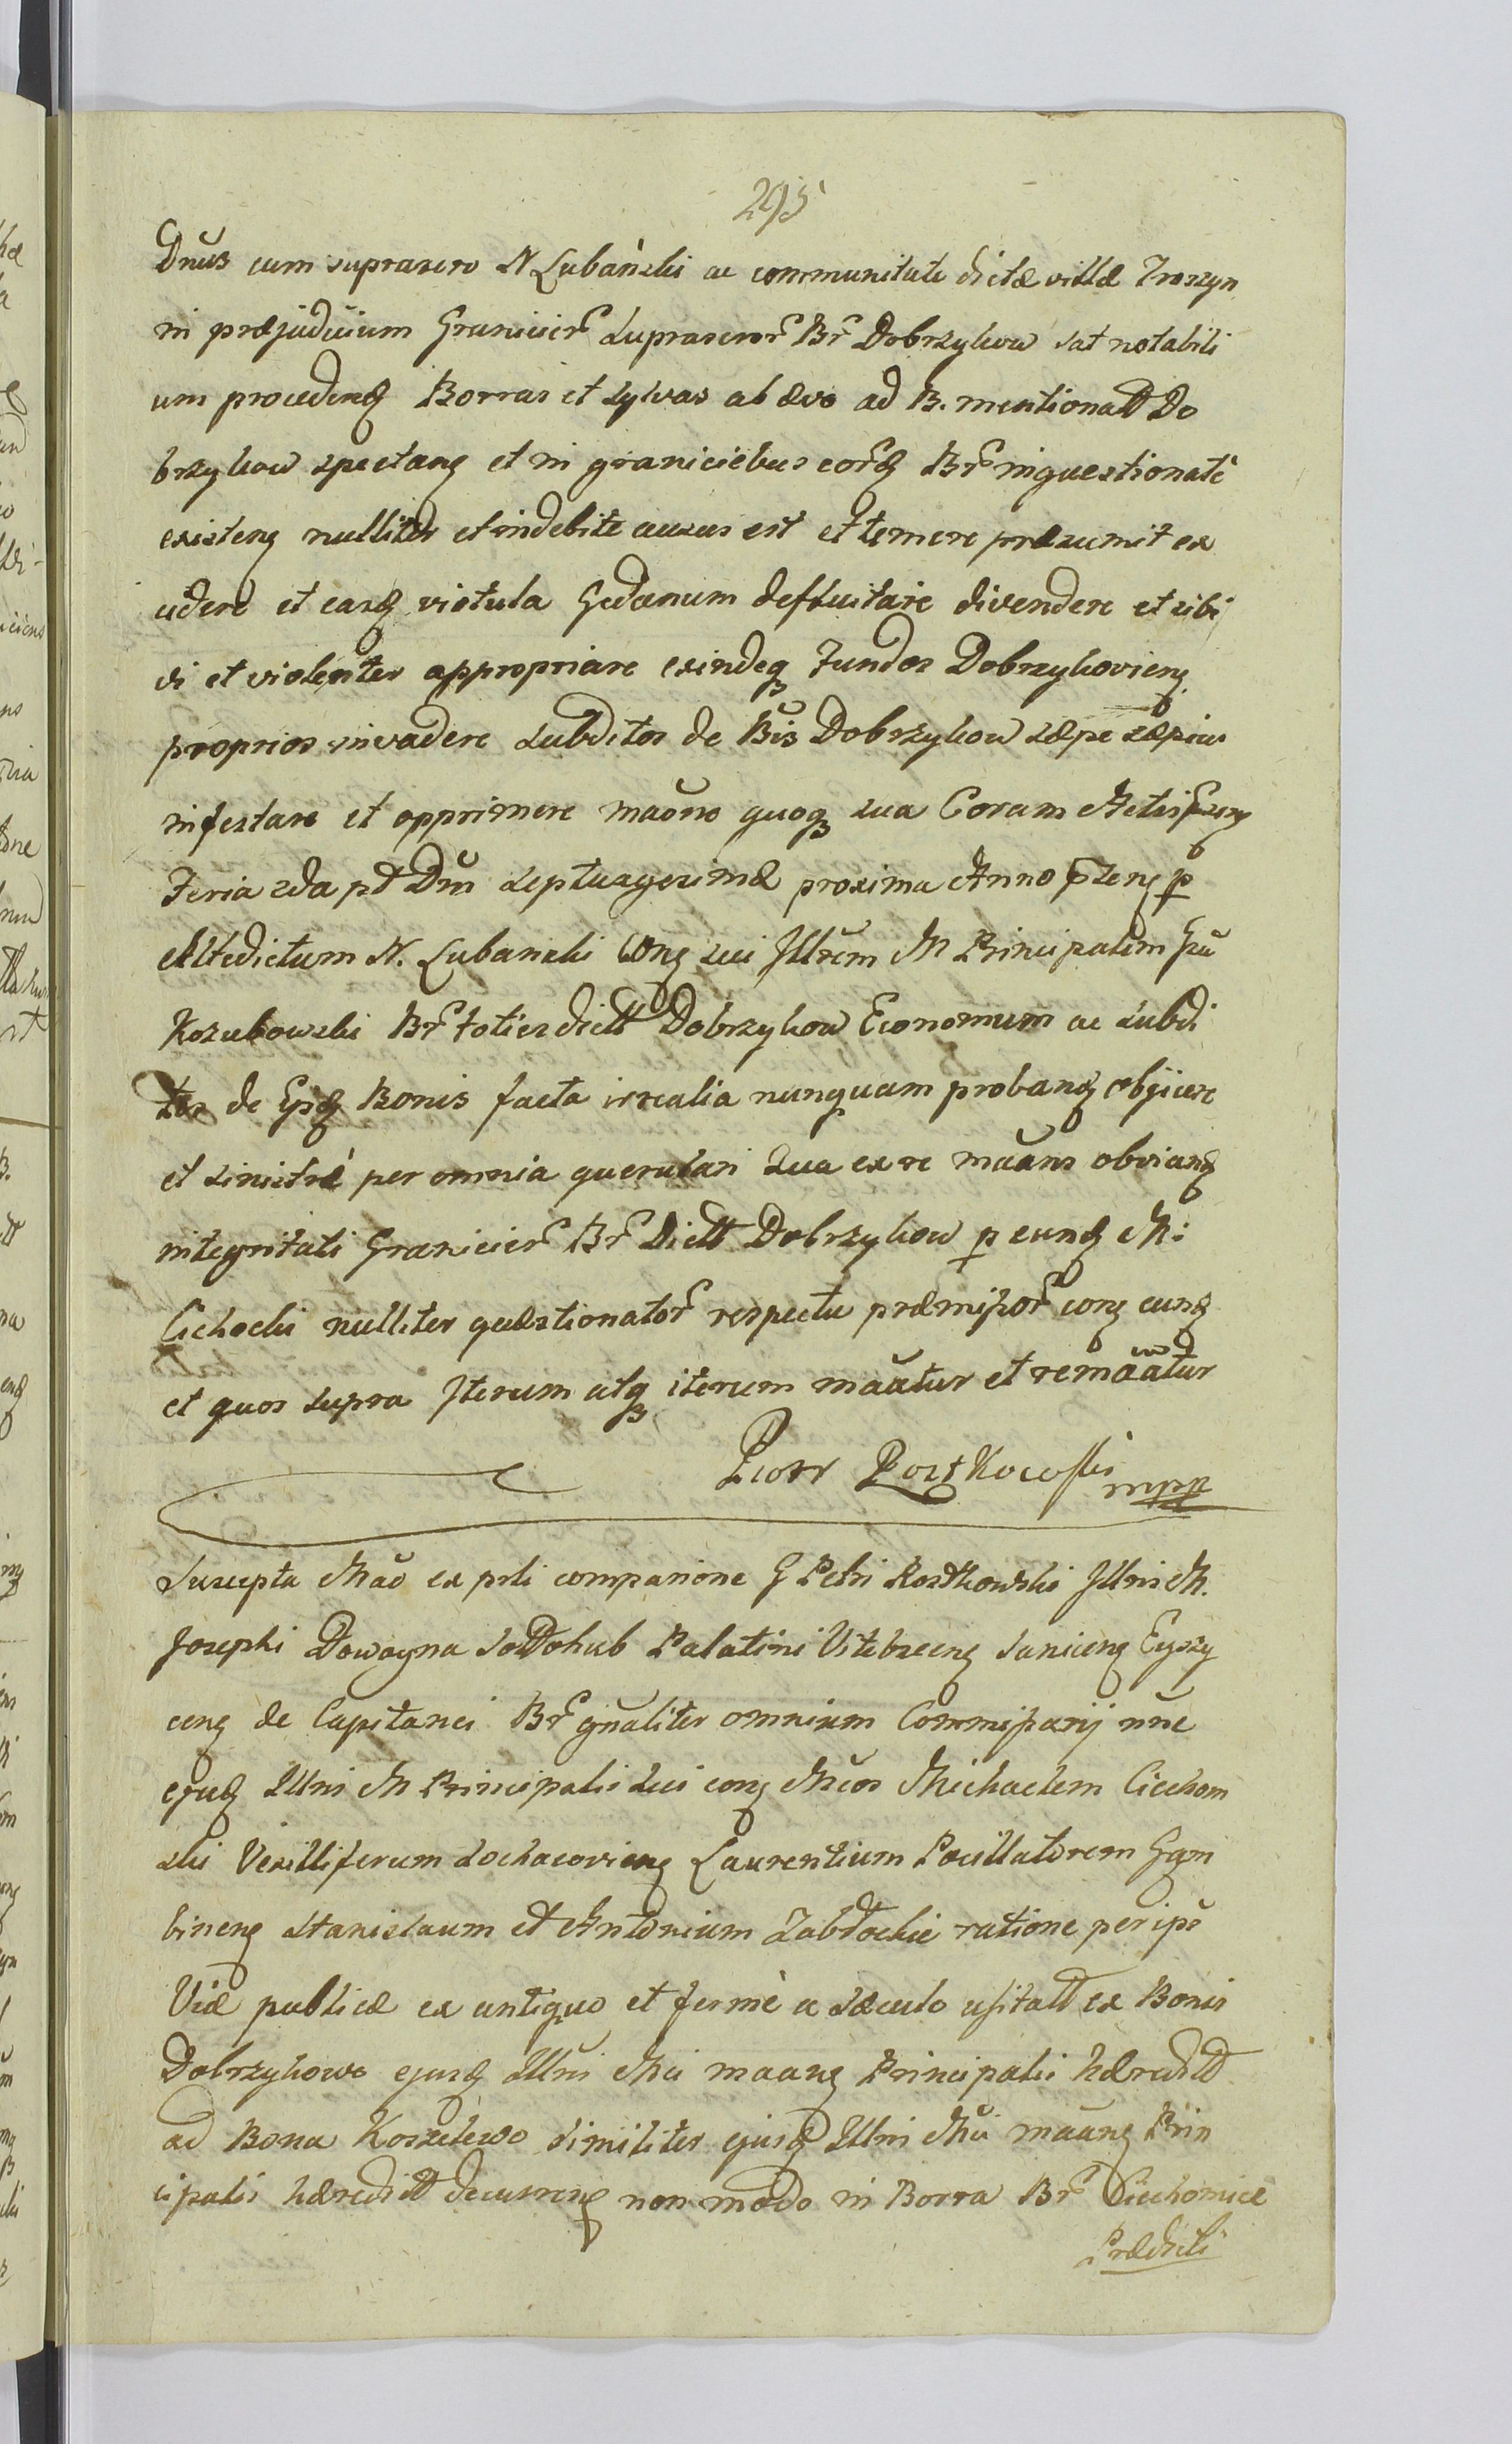 295
Dnus cum suprascro N Lubański ac communitate dictæ villæ Troszyn
in præjudicium Granicier suprascror Br Dobrzykow sat notabili
um procedend Borras et sylvas ab ævo ad B. mentionatt Do
brzykow spectang et in graniciebus eord Br inquestionatè
existeng nulliter et indebite ausus est et temere præsumit ex
cidere et easd vistula Gedanum defluitare divendere et sibi
vi et violenter appropriare exindeq Fundos Dobrzykovieng
proprios invadere subditos de Bis Dobrzykow sæpe sæpius
infestare et opprimere maõne quoq sua Coram Actis
Feria 2da pt Dm Septuagesimæ proxima Anno pzeng p
Antedictum N. Lubanski cong sui Illrem M Principalem Gu
Kozubowski Br toties dictt Dobrzykow Economum ac subdi
tos de Ejsd Bonis facta irrealia nunquam proband objicere
et sinistrè per omnia querulari Qua ex re maans obviand
integritati Granicier Br Dictt Dobrzykow p eund M:
Cichocki nulliter quæstionator respectu præmissor cong eund
et quos supra Iterum atq iterum maatur et remaatur
Piotr Rostkowski mpp
Suscepta Mao ex prli comparione G Petri Rostkowski Illris M.
Josephi Dowoyna Sołłohub Palatini Vitebsceng Saniceng Eyszy
ceng de Capitanei Br gnaliter omnium Commissarij nne
ejusd Illris M Principalis sui cong Mcos Michaelem Ciechom
ski Vexilliferum Sochacovieng Laurentium Pocillatorem Gom
bineng Stanislaum et Antonium Zabłockie ratione per ips
Viæ publicæ ex antiquo et fermè a sæculo usitatt ex Bonis
Dobrzykowo ejusd Illris Mci maang Principalis hæreditt
ad Bona Koszelewo similiter ejusd Illris Mci maang Prin
cipalis hæreditt decurreng non modo in Borra Br Ciechomice
Prædicti